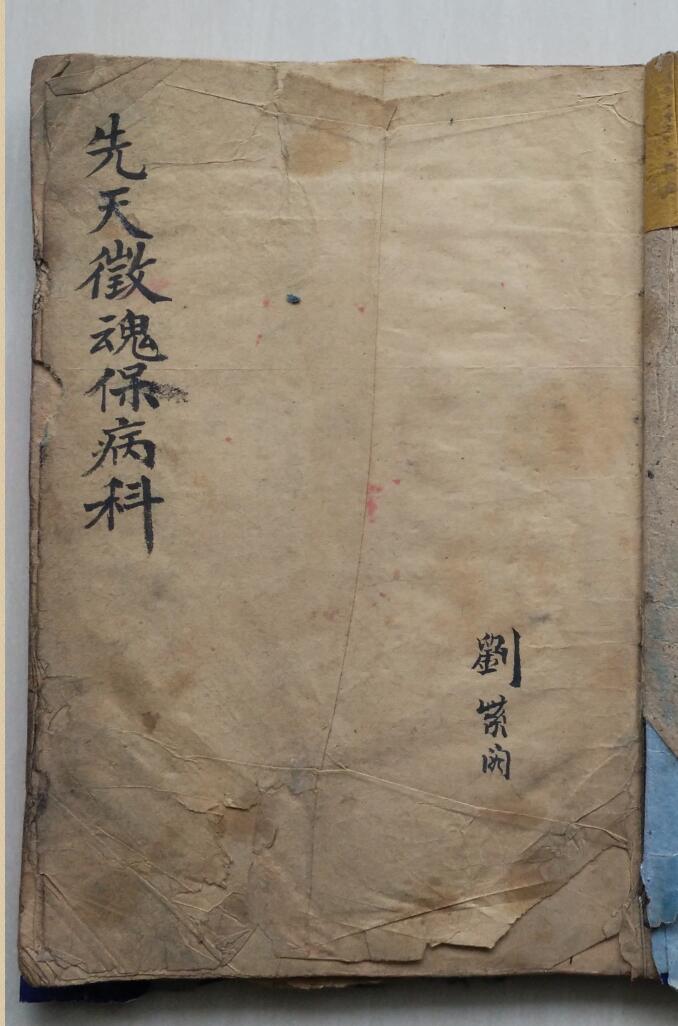 先天徵魂保病科
劉紫閣